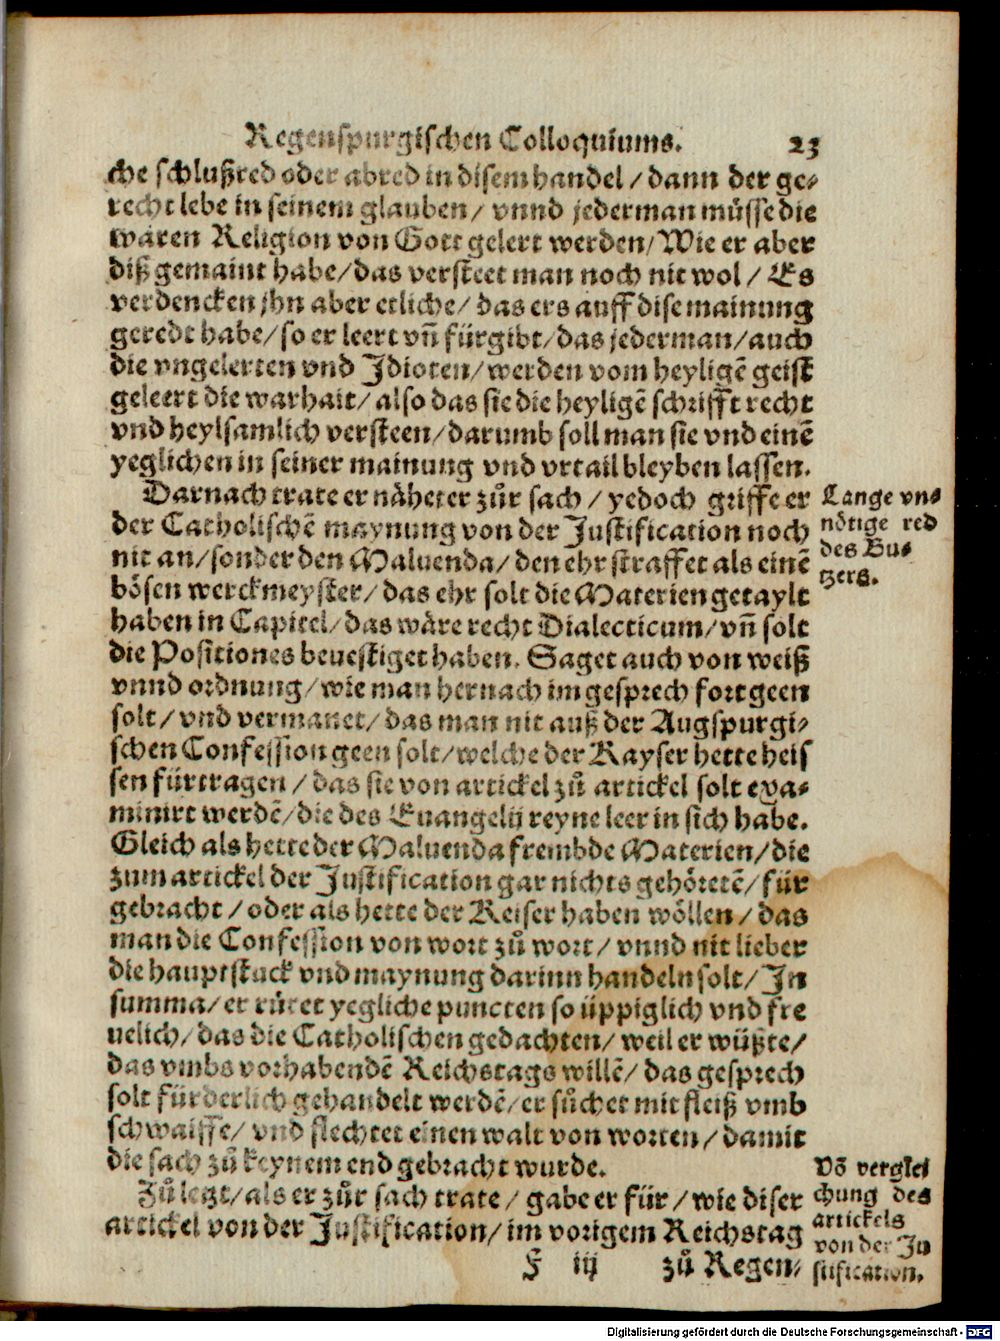 Regenspurgischen Colloquiums. 23
che schlußred oder abred in disem handel / dann der ge⸗
recht lebe in seinem glauben / vnnd jederman müsse die
waren Religion von Gott gelert werden / Wie er aber
diß gemaint habe / das versteet man noch nit wol / Es
verdencken jhn aber etliche / das ers auff dise mainung
geredt habe / so er leert vñ fürgibt / das jederman / auch
die vngelerten vnd Idioten / werden vom heyligẽ geist
geleert die warhait / also das sie die heyligẽ schrifft recht
vnd heylsamlich versteen / darumb soll man sie vnd einẽ
yeglichen in seiner mainung vnd vrtail bleyben lassen.
Darnach trate er näheter zůr sach / yedoch griffe er
der Catholischẽ maynung von der Justification noch
nit an / sonder den Maluenda / den ehr straffet als einẽ
bösen werckmeyster / das ehr solt die Materien getaylt
haben in Capitel / das wäre recht Dialecticum / vñ solt
die Positiones beuestiget haben. Saget auch von weiß
vnnd ordnung / wie man hernach im gesprech fortgeen
solt / vnd vermanet / das man nit auß der Augspurgi⸗
schen Confession geen solt / welche der Kayser hette heis
sen fürtragen / das sie von artickel zů artickel solt exa⸗
minirt werdẽ / die des Euangelij reyne leer in sich habe.
Gleich als hette der Maluenda frembde Materien / die
zum artickel der Justification gar nichts gehöretẽ / für
gebracht / oder als hette der Keiser haben wöllen / das
man die Confession von wort zů wort / vnnd nit lieber
die hauptstuck vnd maynung darinn handeln solt / In
summa / er rüret yegliche puncten so üppiglich vnd fre
uelich / das die Catholischen gedachten / weil er wüßte /
das vmbs vorhabendẽ Reichstags willẽ / das gesprech
solt fürderlich gehandelt werdẽ / er sůchet mit fleiß vmb
schwaiffe / vnd flechtet einen walt von worten / damit
die sach zů keynem end gebracht wurde.
Zů letzt / als er zůr sach trate / gabe er für / wie diser
artickel von der Justification / im vorigem Reichstag
F iij zů Regen⸗
Lange vn⸗
nötige red
des Bu⸗
tzers.
Võ verglei
chung des
artickels
von der Ju
stification.
Digitalisierung gefördert durch die Deutsche Forschungsgemeinschaft - DFG